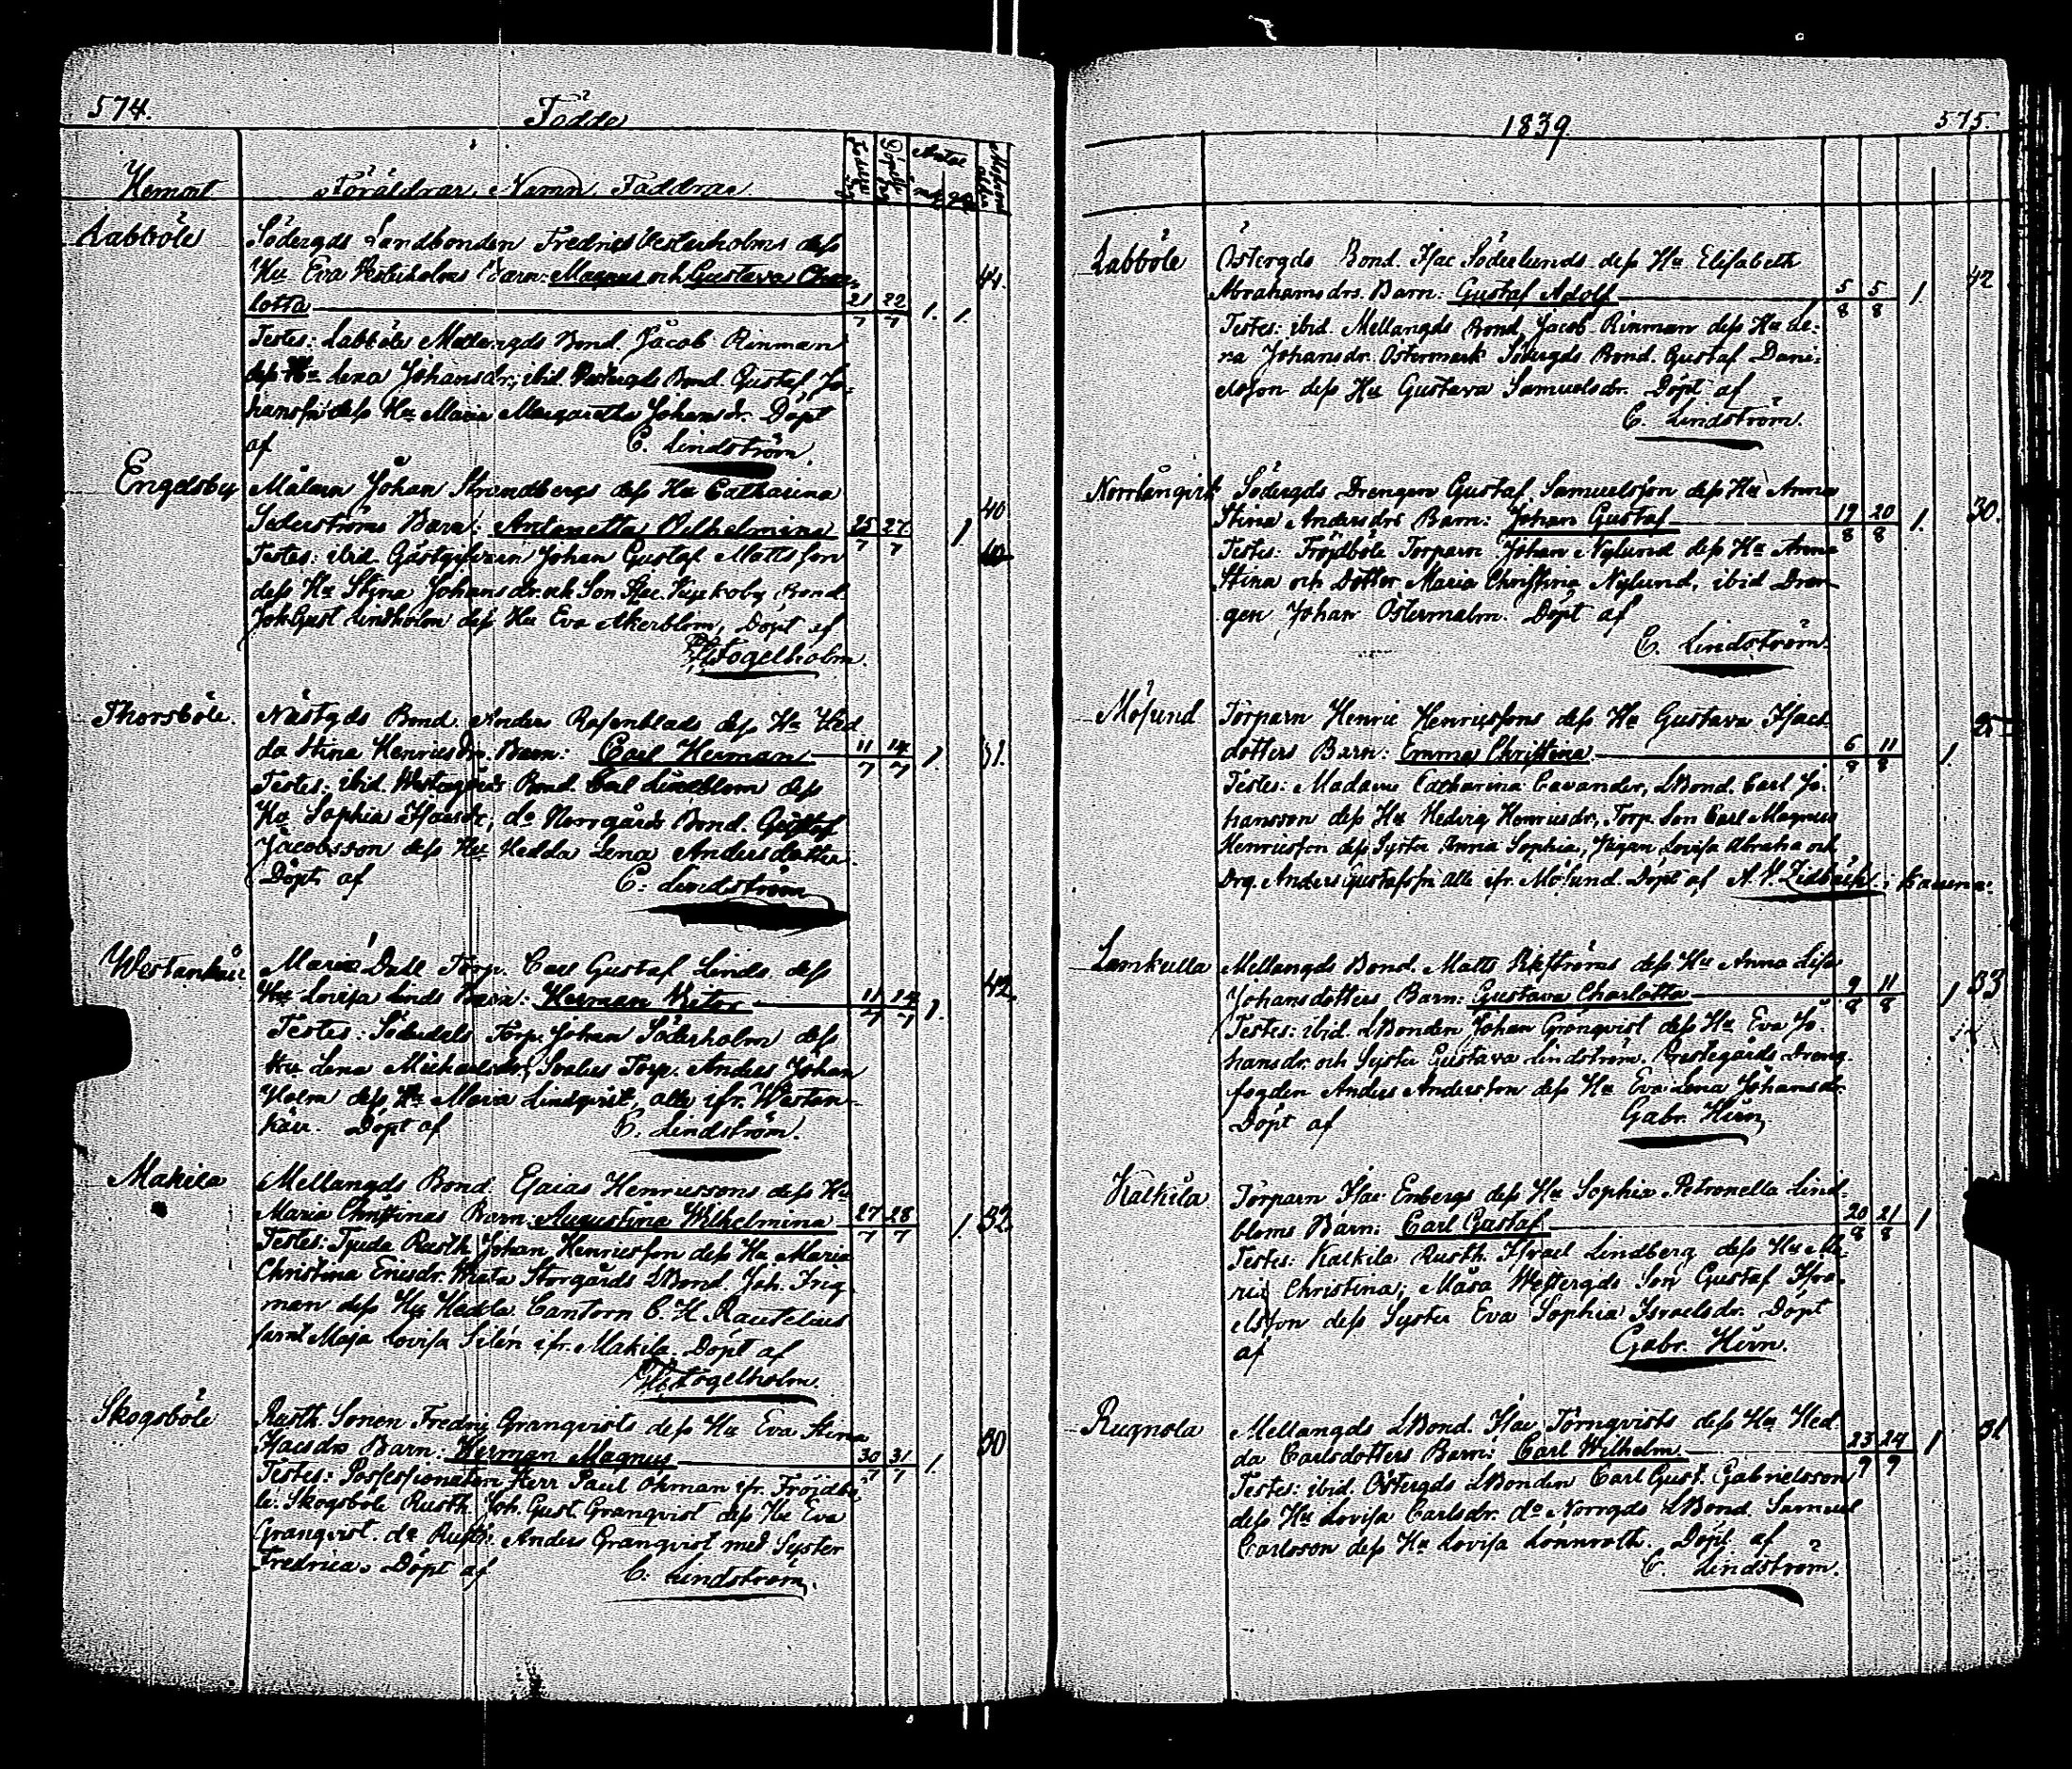 574.
Födde
Hemort
Föräldrar, Namn, Faddrar
Födelse dag
Döpelse dag
Antal
mk
qk
Modrens ålder
Labböle
Södergds Landbonden Fredric Vesterholms dess
Hu Eva Vesterholms Barn: Magnus och Gustava Char-
lotta
21/7 22/7 1. 1. 44.
Testes: Labböle Mellangds Bond. Jacob Rinman
dess Hu Lena Johansdr; ibid. Bond. Gustaf Jo-
hansson dess Hu Maria Margaretha Johansdr. Döpt
af C. Lindström.
Engelsby
Målarn Johan Strandbergs dess Hu Catharina
Söderströms Barn: Antonetta Vilhelmina 25/7 27/7 1. 40
Testes: ibid. Gästgifvarn Johan Gustaf Mattsson
dess Hu Stina Johansdr. och Son Isac. Bond.
Joh. Gust Lindholm dess Hu Eva Åkerblom, Döpt af
Fogelholm.
Thorsböle.
Nästgds Bond. Anders Rosenblads dess Hu Hed-
da Stina Henricsdrs Barn: Carl Herman 11/7 14/7 1. 31.
Testes: ibid. Westergårds Bond. Carl Lindblom dess
Hu Sophia Isacsdr; do Norrgårds Bond. Gustaf
Jacobsson dess Hu Hedda Lena Andersdotter.
Döpt af C. Lindström
Westankärr
Marie Dall Torp. Carl Gustaf Linds dess
Hu Lovisa Linds Barn: Herman Victor 11/7 14/7 1. 42.
Testes: Söderdals Torp. Johan Söderholm dess
Hu Lena Michaelsdr, Torp. Anders Johan
Holm dess Hu Maria Lindqvist, alla ifr. Westan-
kärr. Döpt af C. Lindström.
Makila
Mellangds Bond. Esaias Henricssons dess Hu
Maria Christinas Barn: Augustina Wilhelmina 27/7 28/7 1. 32.
Testes: Tjuda Rusth. Johan Henricsson dess Hu Maria
Christina Ericsdr. Wreta Storgårds LBond. Joh. Frig-
man dess Hu Hedda. Cantorn C. H. Rautelius
samt Maja Lovisa Silén ifr. Makila. Döpt af
Fogelholm.
Skogsböle
Rusth. Sonen Fredric Granqvists dess Hu Eva Stina
Isacsdrs Barn: Herman Magnus 30/7 31/7 1. 30
Testes: Possessionaten Herr Paul Öhman ifr. Fröjdbö-
le. Skogsböle Rusth. Joh. Gust. Granqvist dess Hu Eva
Granqvist. do Rusth. Anders Granqvist med Syster
Fredrica. Döpt af C. Lindström.
1839.
575.
Labböle
Östergds Bond. Isac Söderlunds dess Hu Elisabeth
Abrahamsdrs. Barn: Gustaf Adolf 5/8 5/8 1. 42
Testes: ibid. Mellangds Bond. Jacob Rinman dess Hu Le-
na Johansdr. Östermark Södergds Bond. Gustaf Dani-
elsson dess Hu Gustava Samuelsdr. Döpt af
C. Lindström.
Norrlångvik
Södergds Drengen Gustaf Samuelsson dess Hu Anna
Stina Andersdrs Barn: Johan Gustaf 19/8 20/8 1. 30.
Testes: Fröjdböle Torparn Johan Nylund dess Hu Anna
Stina och Dotter Maria Christina Nylund, ibid Dren-
gen Johan Östermalm. Döpt af
C. Lindström.
Mösund
Torparn Henric Henricssons dess Hu Gustava Isacs-
dotters Barn: Emma Christina 6/8 11/8 1.
Testes: Madame Catharina Cavander, LBond. Carl Jo-
hansson dess Hu Hedvig Henricsdr, Torp. Son Carl Magnus
Henricsson dess Syster Anna Sophia, Pigan Lovisa Abraha och
Drg. Anders Gustafsson alla ifr. Mösund. Döpt af A. V. Zidbäck i
Lemkulla
Mellangds Bond. Matts dess Hu Anna Lisa
Johansdotters Barn: Gustava Charlotta 9/8 11/8 1 33
Testes: ibid. LBonden Johan Grönqvist dess Hu Eva Jo-
hansdr. och Syster Gustava Lindström. Prestegårds Dreng-
fogden Anders Andersson dess Hu Eva Lena Johansdr.
Döpt af Gabr. Hirn
Kalkila
Torparn Isac Enbergs dess Hu Sophia Petronella Lind-
bloms Barn: Carl Gustaf 20/8 21/8 1
Testes: Kalkila Rusth. Israel Lindberg dess Hu Ma-
ria Christina; Måsa Westergds Son Gustaf Isra-
elsson dess Syster Eva Sophia Israelsdr. Döpt
af Gabr. Hirn.
Rugnola
Mellangds LBond. Isac Törnqvists dess Hu Hed-
da Carlsdotters Barn: Carl Wilhelm 23/9 24/9 1 31
Testes: ibid. Östergds LBonden Carl Gust. Gabrielsson
dess Hu Lovisa Carlsdr. do Norrgds LBond. Samuel
Carlsson dess Hu Lovisa Lönnroth. Döpt af
C. Lindström.